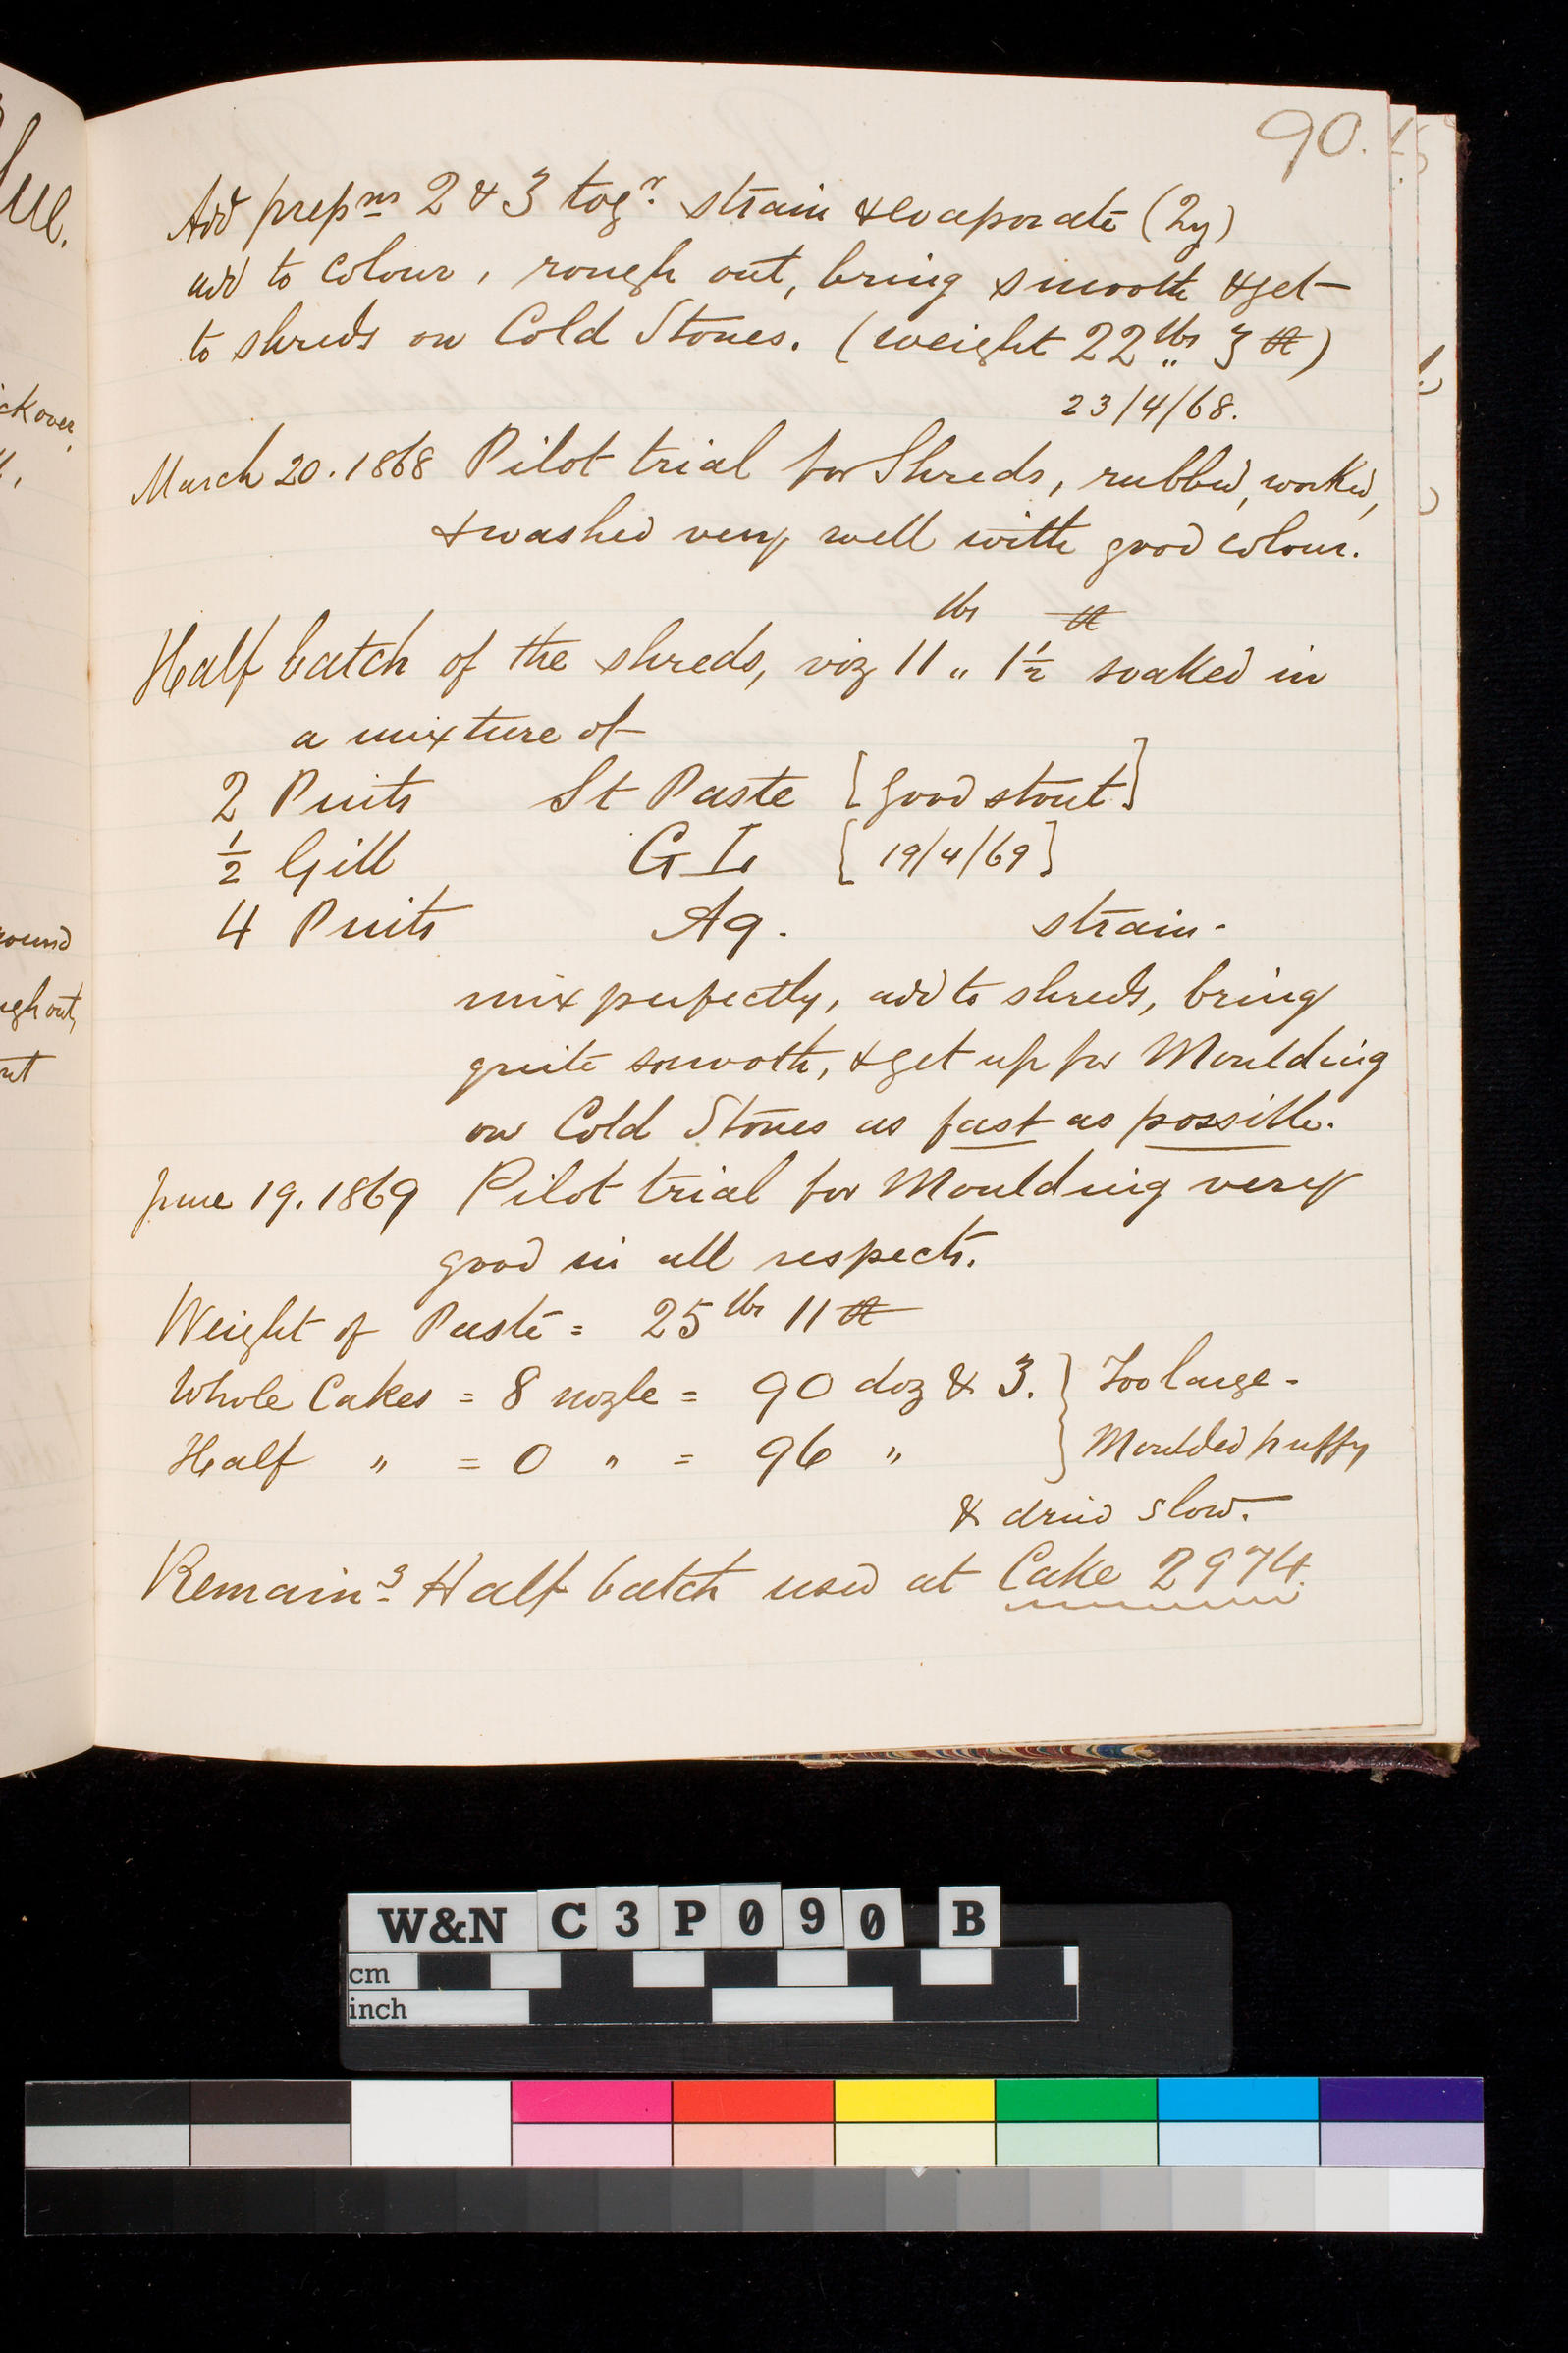 90.
Add prepns 2 & 3 togr. strain & evaporate (2y)
add to colour, rough out, bring smooth & get
to shreds on Cold Stones. (weight 22 lbs 3 )
23/4/68.
March 20. 1868 Pilot trial for Shreds, rubbed, worked,
& washed very well with good colour.
lbs
Half batch of the shreds, viz 11 " 1½ soaked in
a mixture of
2 Pints St Paste [Good stout]
½ Gill G I [19/4/69]
4 Pints Aq. strain.
mix perfectly, add to shreds, bring
quite smooth, & get up for Moulding
on Cold Stones as fast as possible.
June 19. 1869 Pilot trial for Moulding very
good in all respects.
Weight of Paste = 25 lbs 11
Whole Cakes = 8 nozle = 90 doz & 3. } Too large.
Half " = 0 " = 96 " } Moulded puffy
& dried slow.
Remaing Half batch used at Cake 2974.
ue.
ck over,
ound
ugh out,
W&N C 3 P 0 9 0 B
cm
inch